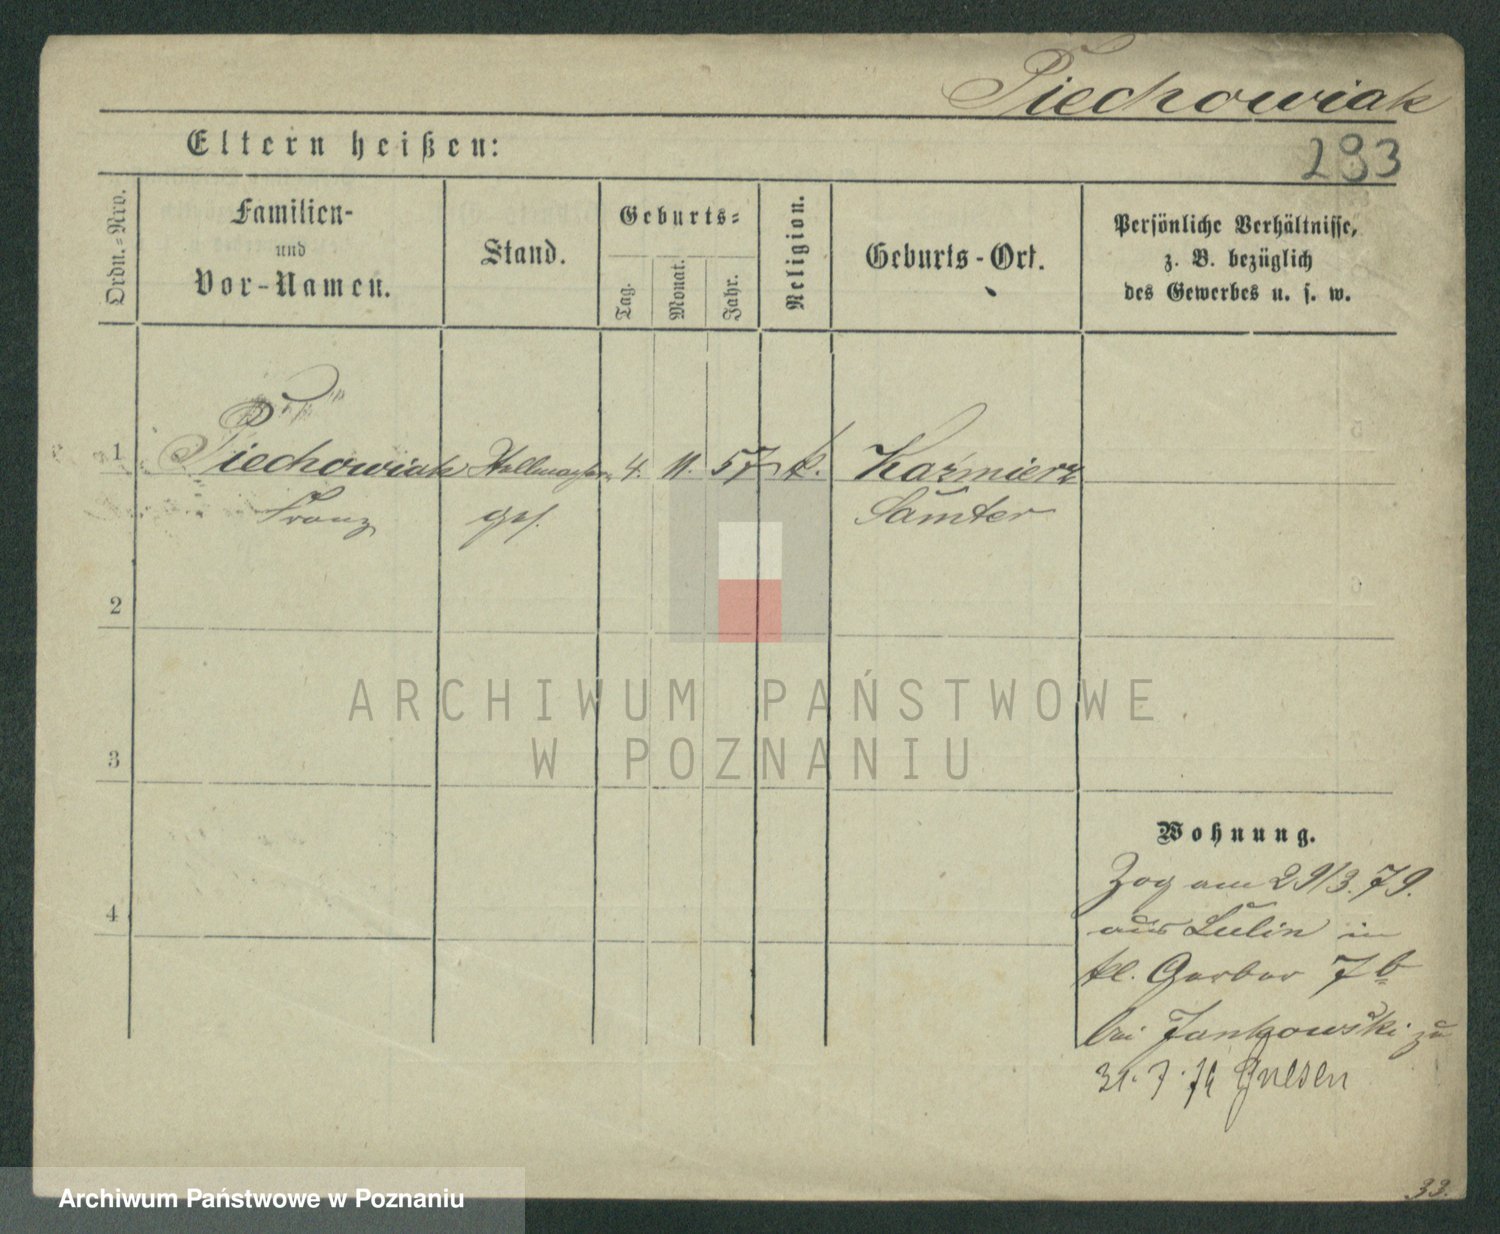 Piechowiak
283
Eltern heißen:
Ordn.-Nro.
Familien-
und
Vor-Namen.
Stand.
Geburts-
Tag.
Monat.
Jahr.
Religion.
Geburts-Ort.
Persönliche Verhältnisse,
z. B. bezüglich
des Gewerbes u. s. w.
1
Piechowiak Stellmacher 4. 11. 57 k. Kaźmierz
Franz ges. Samter
2
3
4
ARCHIWUM PAŃSTWOWE
W POZNANIU
Wohnung.
Zog am 29/3.79.
aus Lulin in
kl. Gerber 7b
bei Jankowski zu
31.7.79 Gnesen
33.
Archiwum Państwowe w Poznaniu